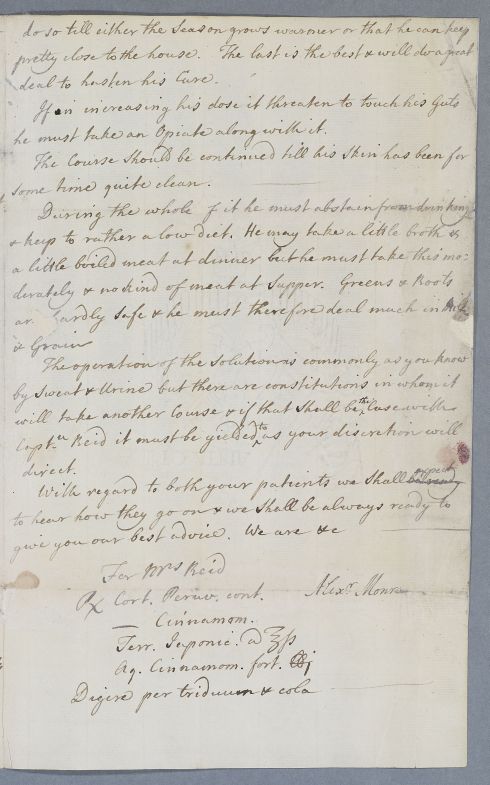 do so till either the Season grows warmer or that he can keep
pretty close to the house. The last is the best & will do a great
deal to hasten his Cure.
If in increasing his dose it threaten to touch his Guts
he must take an Opiate along with it.
The Course Should be continued till his Skin has been for
some time quite clean.
During the whole of it he must abstain from drinking
& keep to rather a low diet. He may take a little broth &
a little boiled meat at dinner but he must take this mo-
derately & no kind of meat at Supper. Greens & Roots
are hardly Safe & he must therefore deal much in Milk
& Grain
The operation of the Solution is commonly as you know
by Sweat & Urine but there are constitutions in whom it
will take another Course & if that Shall be the Case with
Capt.n Reid it must be yielded to as your discretion will
direct.
With regard to both your patients we Shall expect
to hear how they go on & we Shall be always ready to
give you our best advice. We are &c
For Mrs Reid
Alexr. Monro
℞ Cort. Peruv. cont.
— Cinnamom.
Terr. Japonic. a ʒſs
Aq. Cinnamom. fort. ℔j
Digere per triduum & cola